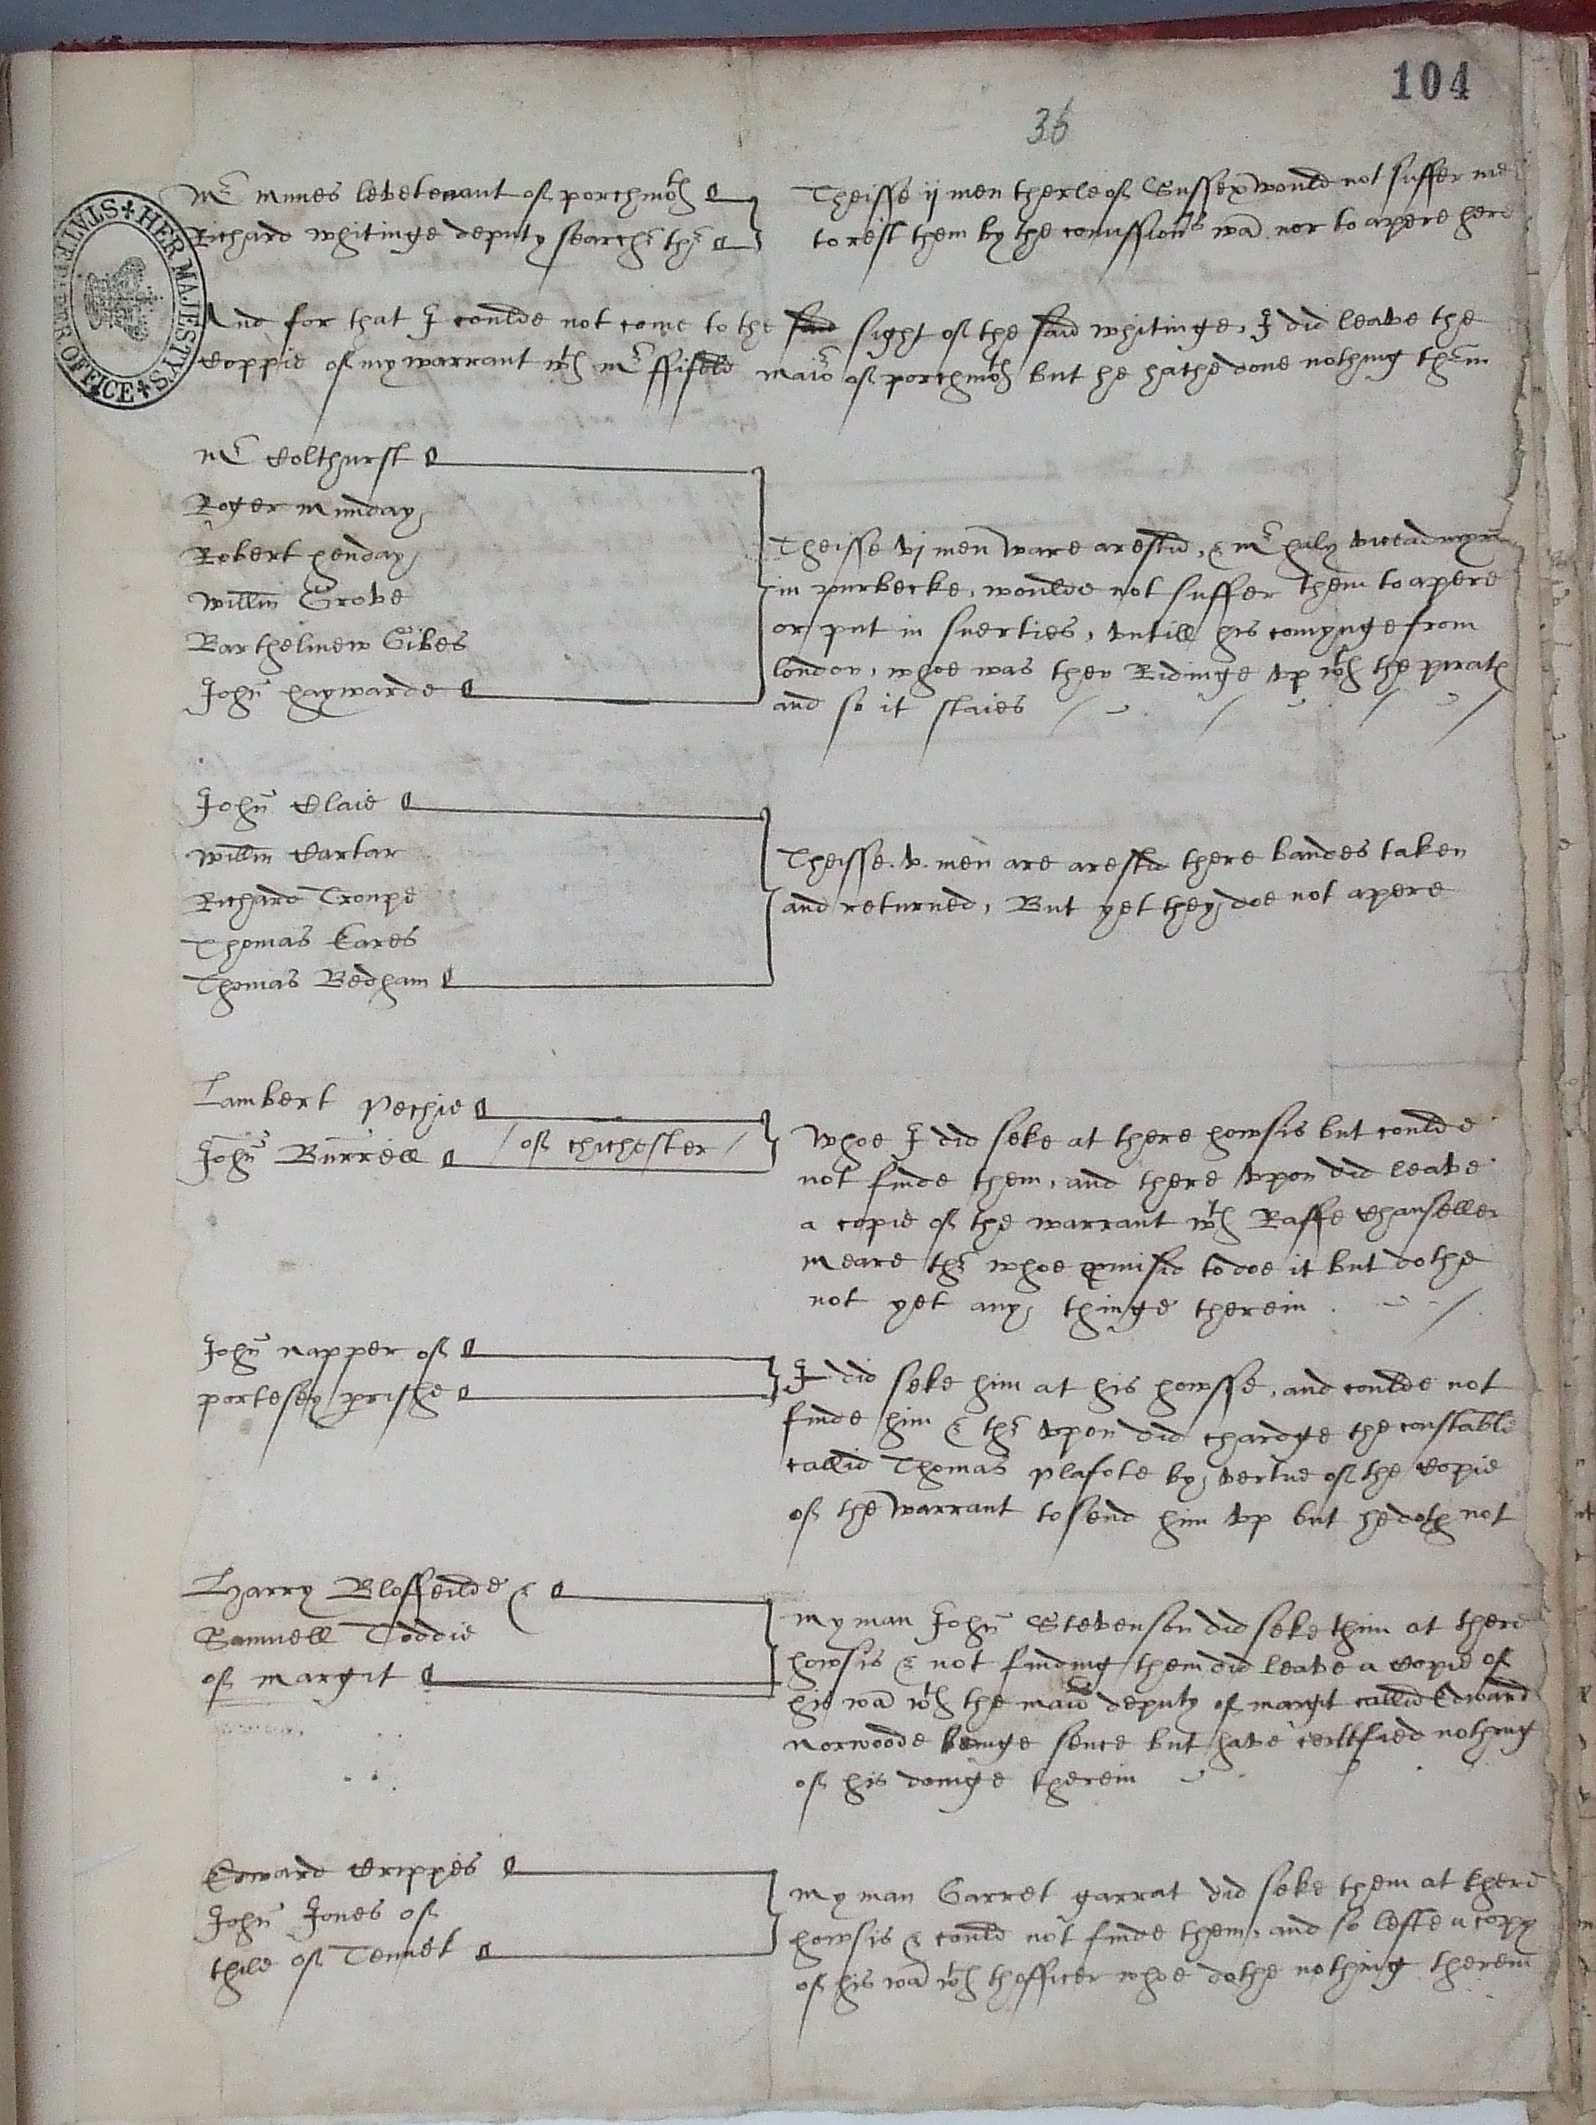 104
36
Mr Mines levetenant of porchmoth
Richard Whitinge deputy searcher ther
Theisse ij men therle of Sussex would not suffer me
to rest them by the comissioners wa nor to apere here
And for that I coulde not come to the said sight of the said Whitinge, I did leave the
Coppie of my warrant wth Mr ffifeld maior of porchmoth but he hathe done nothing therin
Mr Colthurst
Roger Munday
Robert henday
Willm Grove
Barthelmew Gibes
John haywarde
Theisse vj men ware arestid, & Mr haly viceadmyrall
in purbecke, woulde not suffer them to apere
or put in suerties, untill his comynge from
london, whoe was then Ridinge up wth the pirates
and so it staies
John Claie
Willm Cartar
Richard Troupe
Thomas Eares
Thomas Bedham
Theisse .v. men are arestid there bandes taken
and returned, But yet they doe not apere
Lambert Pechie
John Burrell
of chichester
Whoe I did seke at there howsis but coulde
not finde them, and there upon did leave
a copie of the warrant wth Raffe Chanseller
Meare ther whoe promisid to doe it but dothe
not yet any thinge therein
John Napper of
portesey prishe
I did seke him at his howsse, and coulde not
finde him & ther upon did chardge the constable
callid Thomas Plafote by vertue of the Copie
of the warrant to send him up but he doth not
Harry Bloffeilde &
Samuell Toddie
of margit
My man John Stevenson did seke thim at there
howsis & not finding them did leave a Copie of
his wa wth the maior deputy of margit callid Edward
Norwoode beinge sence but have certtfied nothing
of his doinge therein
Edward Crippes
John Jones of
thile of Tennet
My man Garret garrat did seke them at there
howsis & could not finde them, and so lefte a copy
of his wa wth thofficer whoe dothe nothing therein
HER MAJESTY'S STATE PAPER OFFICE